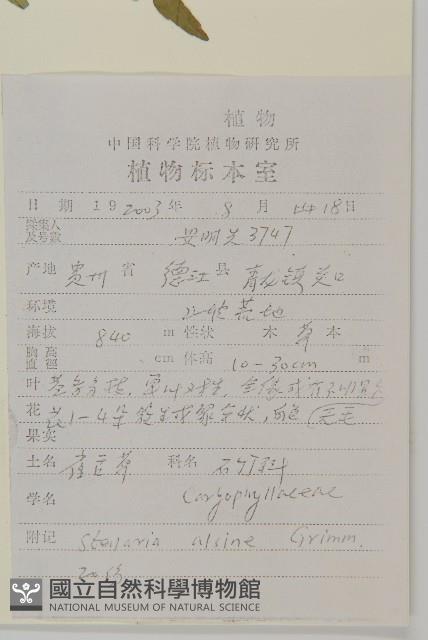 植物
中国科学院植物研究所
植物标本室
日 期 19 2003 年 8 月 18 日
采集人
及号数 安明先 3747
产地 贵州 省 德江 县 青龙镇
环境 荒地
海拔 840 m 性状 木 草 本
胸高
直径 cm 体高 10-30cm m
叶 基部分枝, 单叶对生,
花 花1-4朵 白色
果实
土名 雀舌草 科名 石竹科
学名 Caryophyllaceae
附记 Stellaria alsine Grimm.
20份
國立自然科學博物館
NATIONAL MUSEUM OF NATURAL SCIENCE